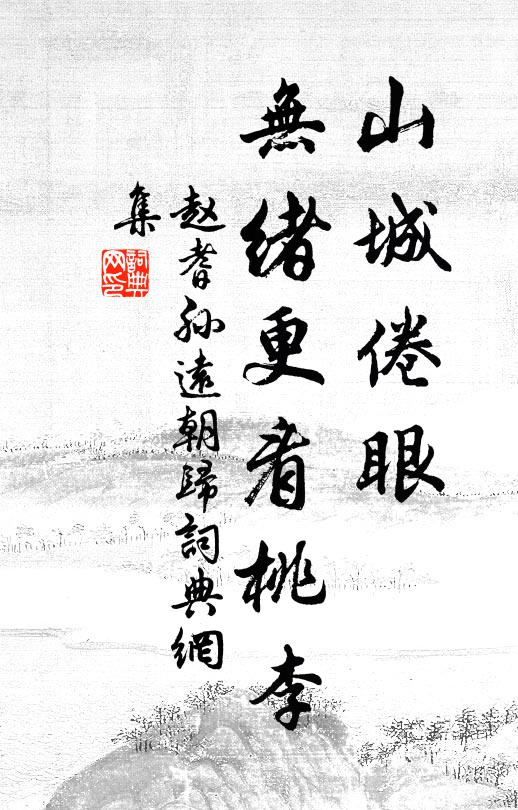 山城倦眼
無緒更看桃李
赵耆孙遠朝歸詞典網
集
詞典网印